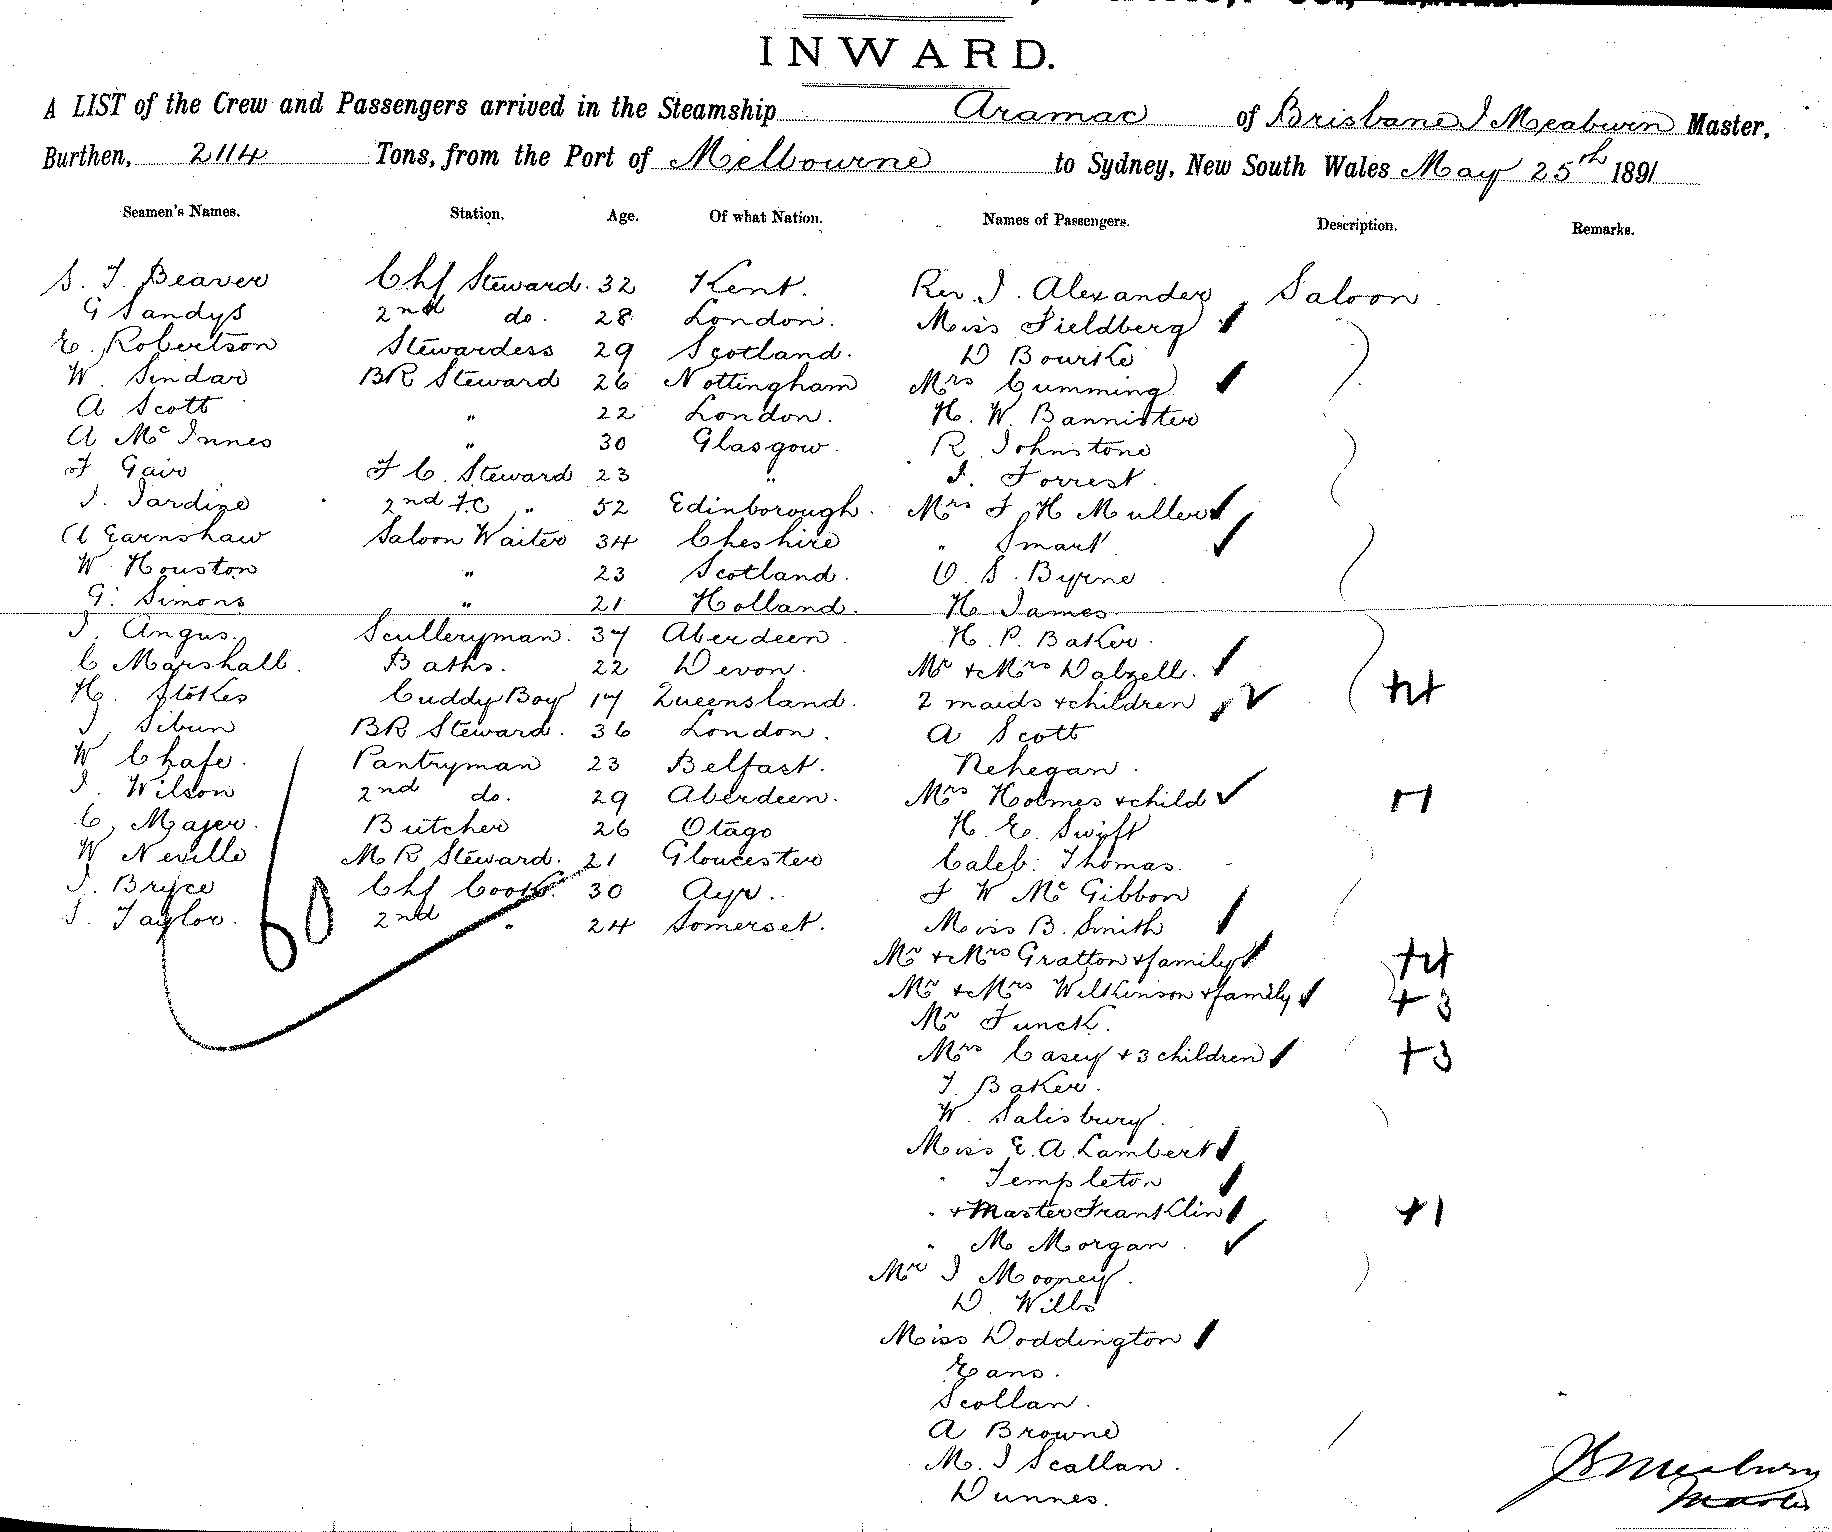 INWARD.
A LIST of the Crew and Passengers arrived in the Steamship Aramac of Brisbane J Meaburn Master,
Burthen, 2114 Tons, from the Port of Melbourne to Sydney, New South Wales May 25th 1891
Seamen's Names. Station. Age. Of what Nation. Names of Passengers. Description. Remarks.
S. T. Beaver Chf Steward. 32 Kent. Rev. J. Alexander Saloon
G Sandys 2nd do. 28 London. Miss Fieldberg
E. Robertson Stewardess 29 Scotland. D Bourke
W. Sindar BR Steward 26 Nottingham Mrs Cumming
A Scott " 22 London. H. W. Bannister
A McInnes " 30 Glasgow. R. Johnstone
F Gair F C. Steward 23 " J. Forrest.
J. Jardine 2nd F.C " 52 Edinborough. Mrs F H Muller
A Earnshaw Saloon Waiter 34 Cheshire " Smart
W. Houston " 23 Scotland. O. S. Byrne
G. Simons " 21 Holland. H James
J. Angus. Sculleryman. 37 Aberdeen. H. P. Baker.
C Marshall. Baths. 22 Devon. Mr & Mrs Dalzell.
H. Stokes Cuddy Boy 17 Queensland. 2 maids & children +4
J. Sibun BR Steward. 36 London. A Scott
W Chafe. Pantryman 23 Belfast. Nehegan.
J. Wilson 2nd do. 29 Aberdeen. Mrs Holmes & child +1
C. Majer. Butcher 26 Otago H. E. Swift
W Neville M R Steward. 21 Gloucester Caleb. Thomas.
J. Bryce Chf Cook. 30 Ayr. F W McGibbon
J. Taylor. 2nd " 24 Somerset. Miss B. Smith
60
Mr & Mrs Gratton & family +4
Mr & Mrs Wilkinson & family +3
Mr Funck.
Mrs Casey & 3 children +3
T. Baker.
W. Salisbury.
Miss E. A. Lambert
" Templeton
" & Master Franklin +1
" M Morgan.
Mr J Mooney.
D. Wills
Miss Doddington
Eans.
Scollan.
A Browne
M. J Scallan.
Dunnes.
J Meaburn
Master